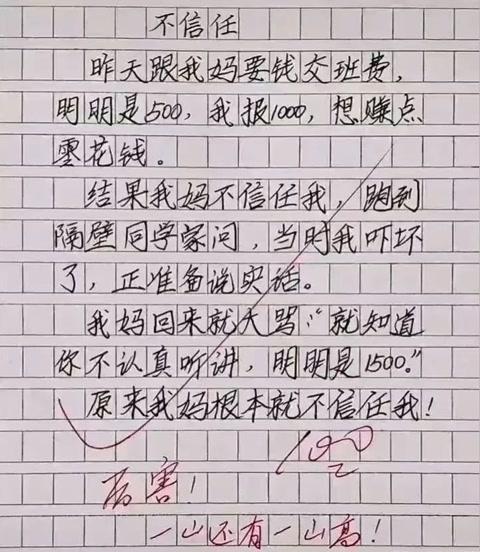 不信任
昨天跟我妈要钱交班费,
明明是500, 我报1000, 想赚点
零花钱。
结果我妈不信任我, 跑到
隔壁同学家问, 当时我吓坏
了, 正准备说实话。
我妈回来就大骂:“就知道
你不认真听讲, 明明是1500.”
原来我妈根本就不信任我!
100
厉害!
一山还有一山高!